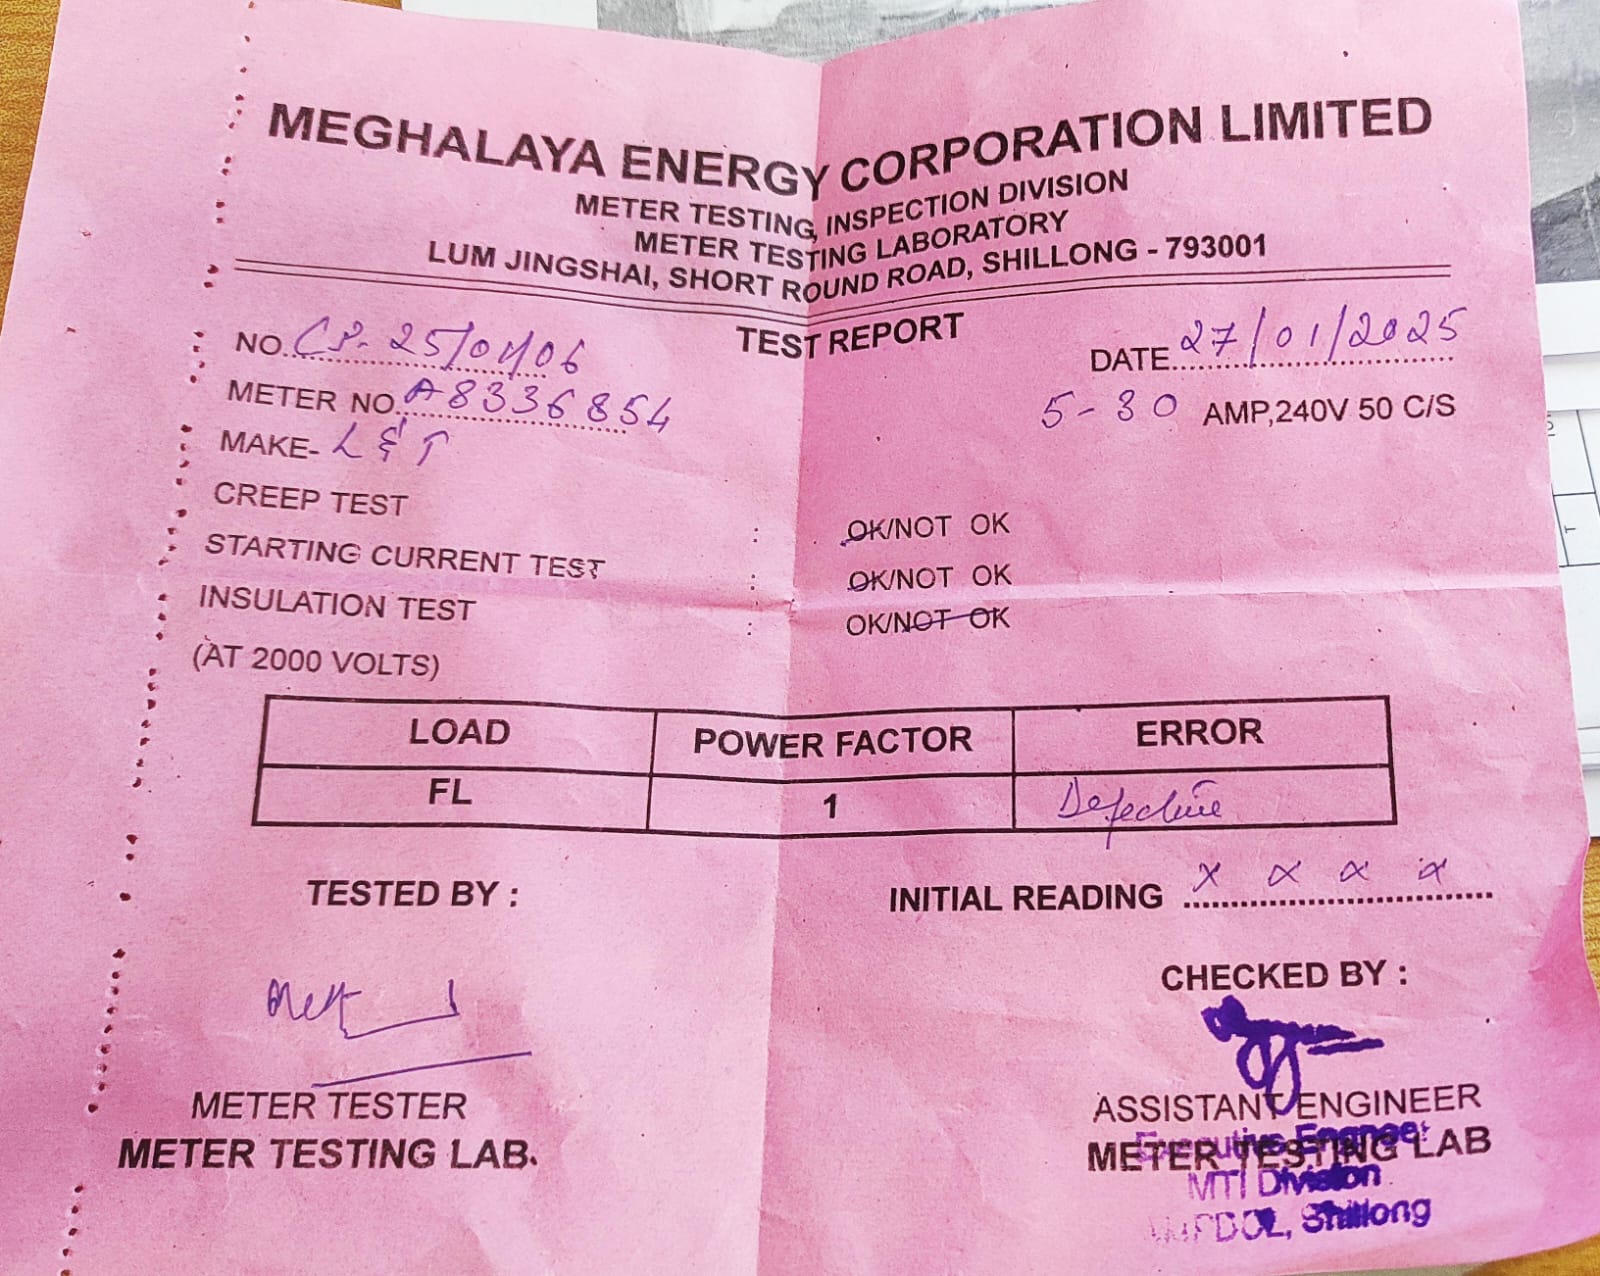 MEGHALAYA ENERGY CORPORATION LIMITED
METER TESTING, INSPECTION DIVISION
METER TESTING LABORATORY
LUM JINGSHAI, SHORT ROUND ROAD, SHILLONG - 793001
TEST REPORT
NO. CP-25/01/06 DATE 27/01/2025
METER NO. A8336854 5-30 AMP,240V 50 C/S
MAKE- L&T
CREEP TEST : OK/NOT OK
STARTING CURRENT TEST : OK/NOT OK
INSULATION TEST : OK/NOT OK
(AT 2000 VOLTS)
LOAD POWER FACTOR ERROR
FL 1 Defective
TESTED BY : INITIAL READING x x x x
CHECKED BY :
METER TESTER ASSISTANT ENGINEER
METER TESTING LAB. METER TESTING LAB
Executive Engineer
MTI Division
MePDCL, Shillong